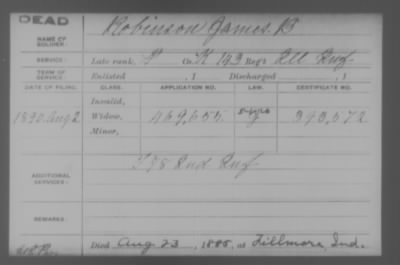 DEAD
NAME OF SOLDIER: Robinson James B
SERVICE: Late rank, P Co. K 143 Reg't Ill Inf
TERM OF SERVICE: Enlisted , 1 Discharged , 1
DATE OF FILING. CLASS. APPLICATION NO. LAW. CERTIFICATE NO.
Invalid,
1890. Aug 2 Widow, 469,655 393,572
Minor,
ADDITIONAL SERVICES: F 78 Ind Inf
REMARKS:
Died Aug 23, 1885, at Fillmore, Ind.